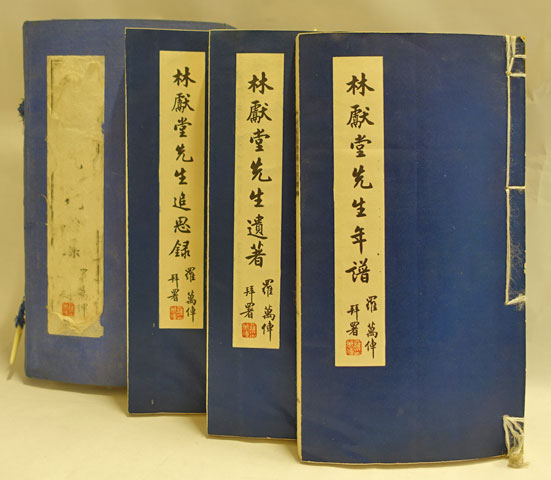 林獻堂先生年譜
羅萬俥
拜署
林獻堂先生遺著
羅萬俥
拜署
林獻堂先生追思録
羅萬俥
拜署
羅萬俥